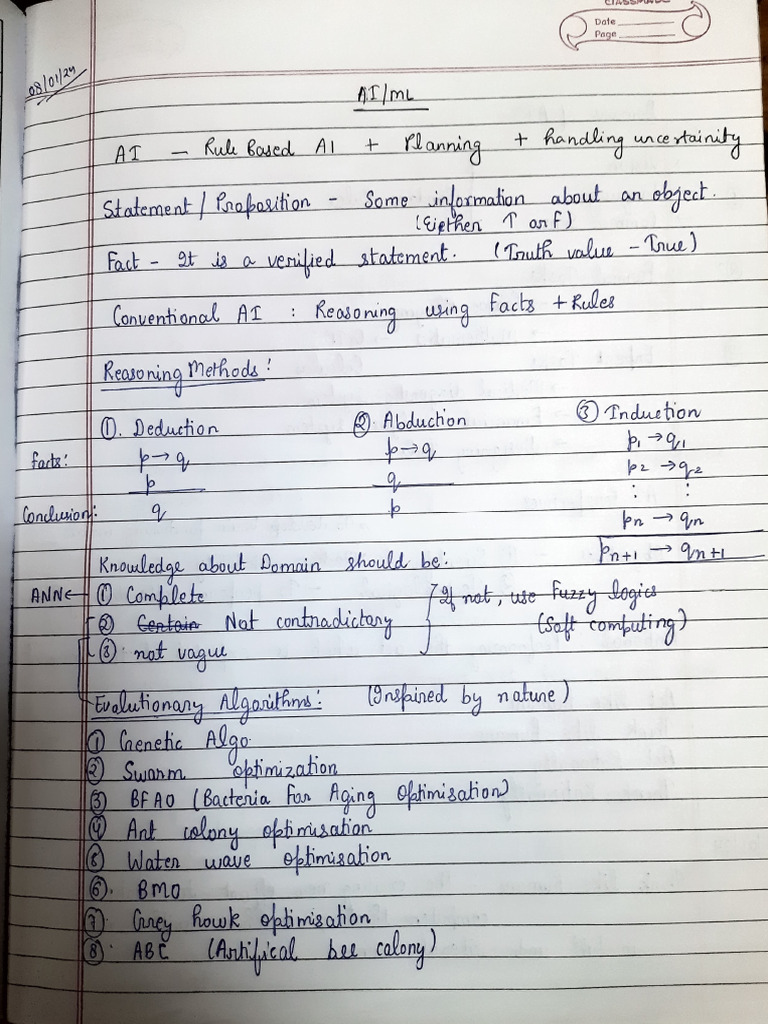 CLASSMATE
Date
Page
08/01/24
AI/ML
AI — Rule Based AI + Planning + handling uncertainity
Statement / Proposition - Some information about an object.
(Eiether T or F)
Fact - It is a verified statement. (Truth value - True)
Conventional AI : Reasoning using Facts + Rules
Reasoning Methods:
①. Deduction ②. Abduction ③ Induction
Facts: p→q p→q p₁→q₁
p q p₂→q₂
Conclusion: q p : :
pₙ → qₙ
Knowledge about Domain should be: pₙ₊₁ → qₙ₊₁
ANN← ① Complete If not, use Fuzzy logics
② Certain Not contradictory (Soft computing)
③ not vague
Evolutionary Algorithms: (Inspired by nature)
① Genetic Algo
② Swarm optimization
③ BFAO (Bacteria For Aging Optimisation)
④ Ant colony optimisation
⑤ Water wave optimisation
⑥. BMO
⑦. Grey howk optimisation
⑧. ABC (Artifical bee colony)